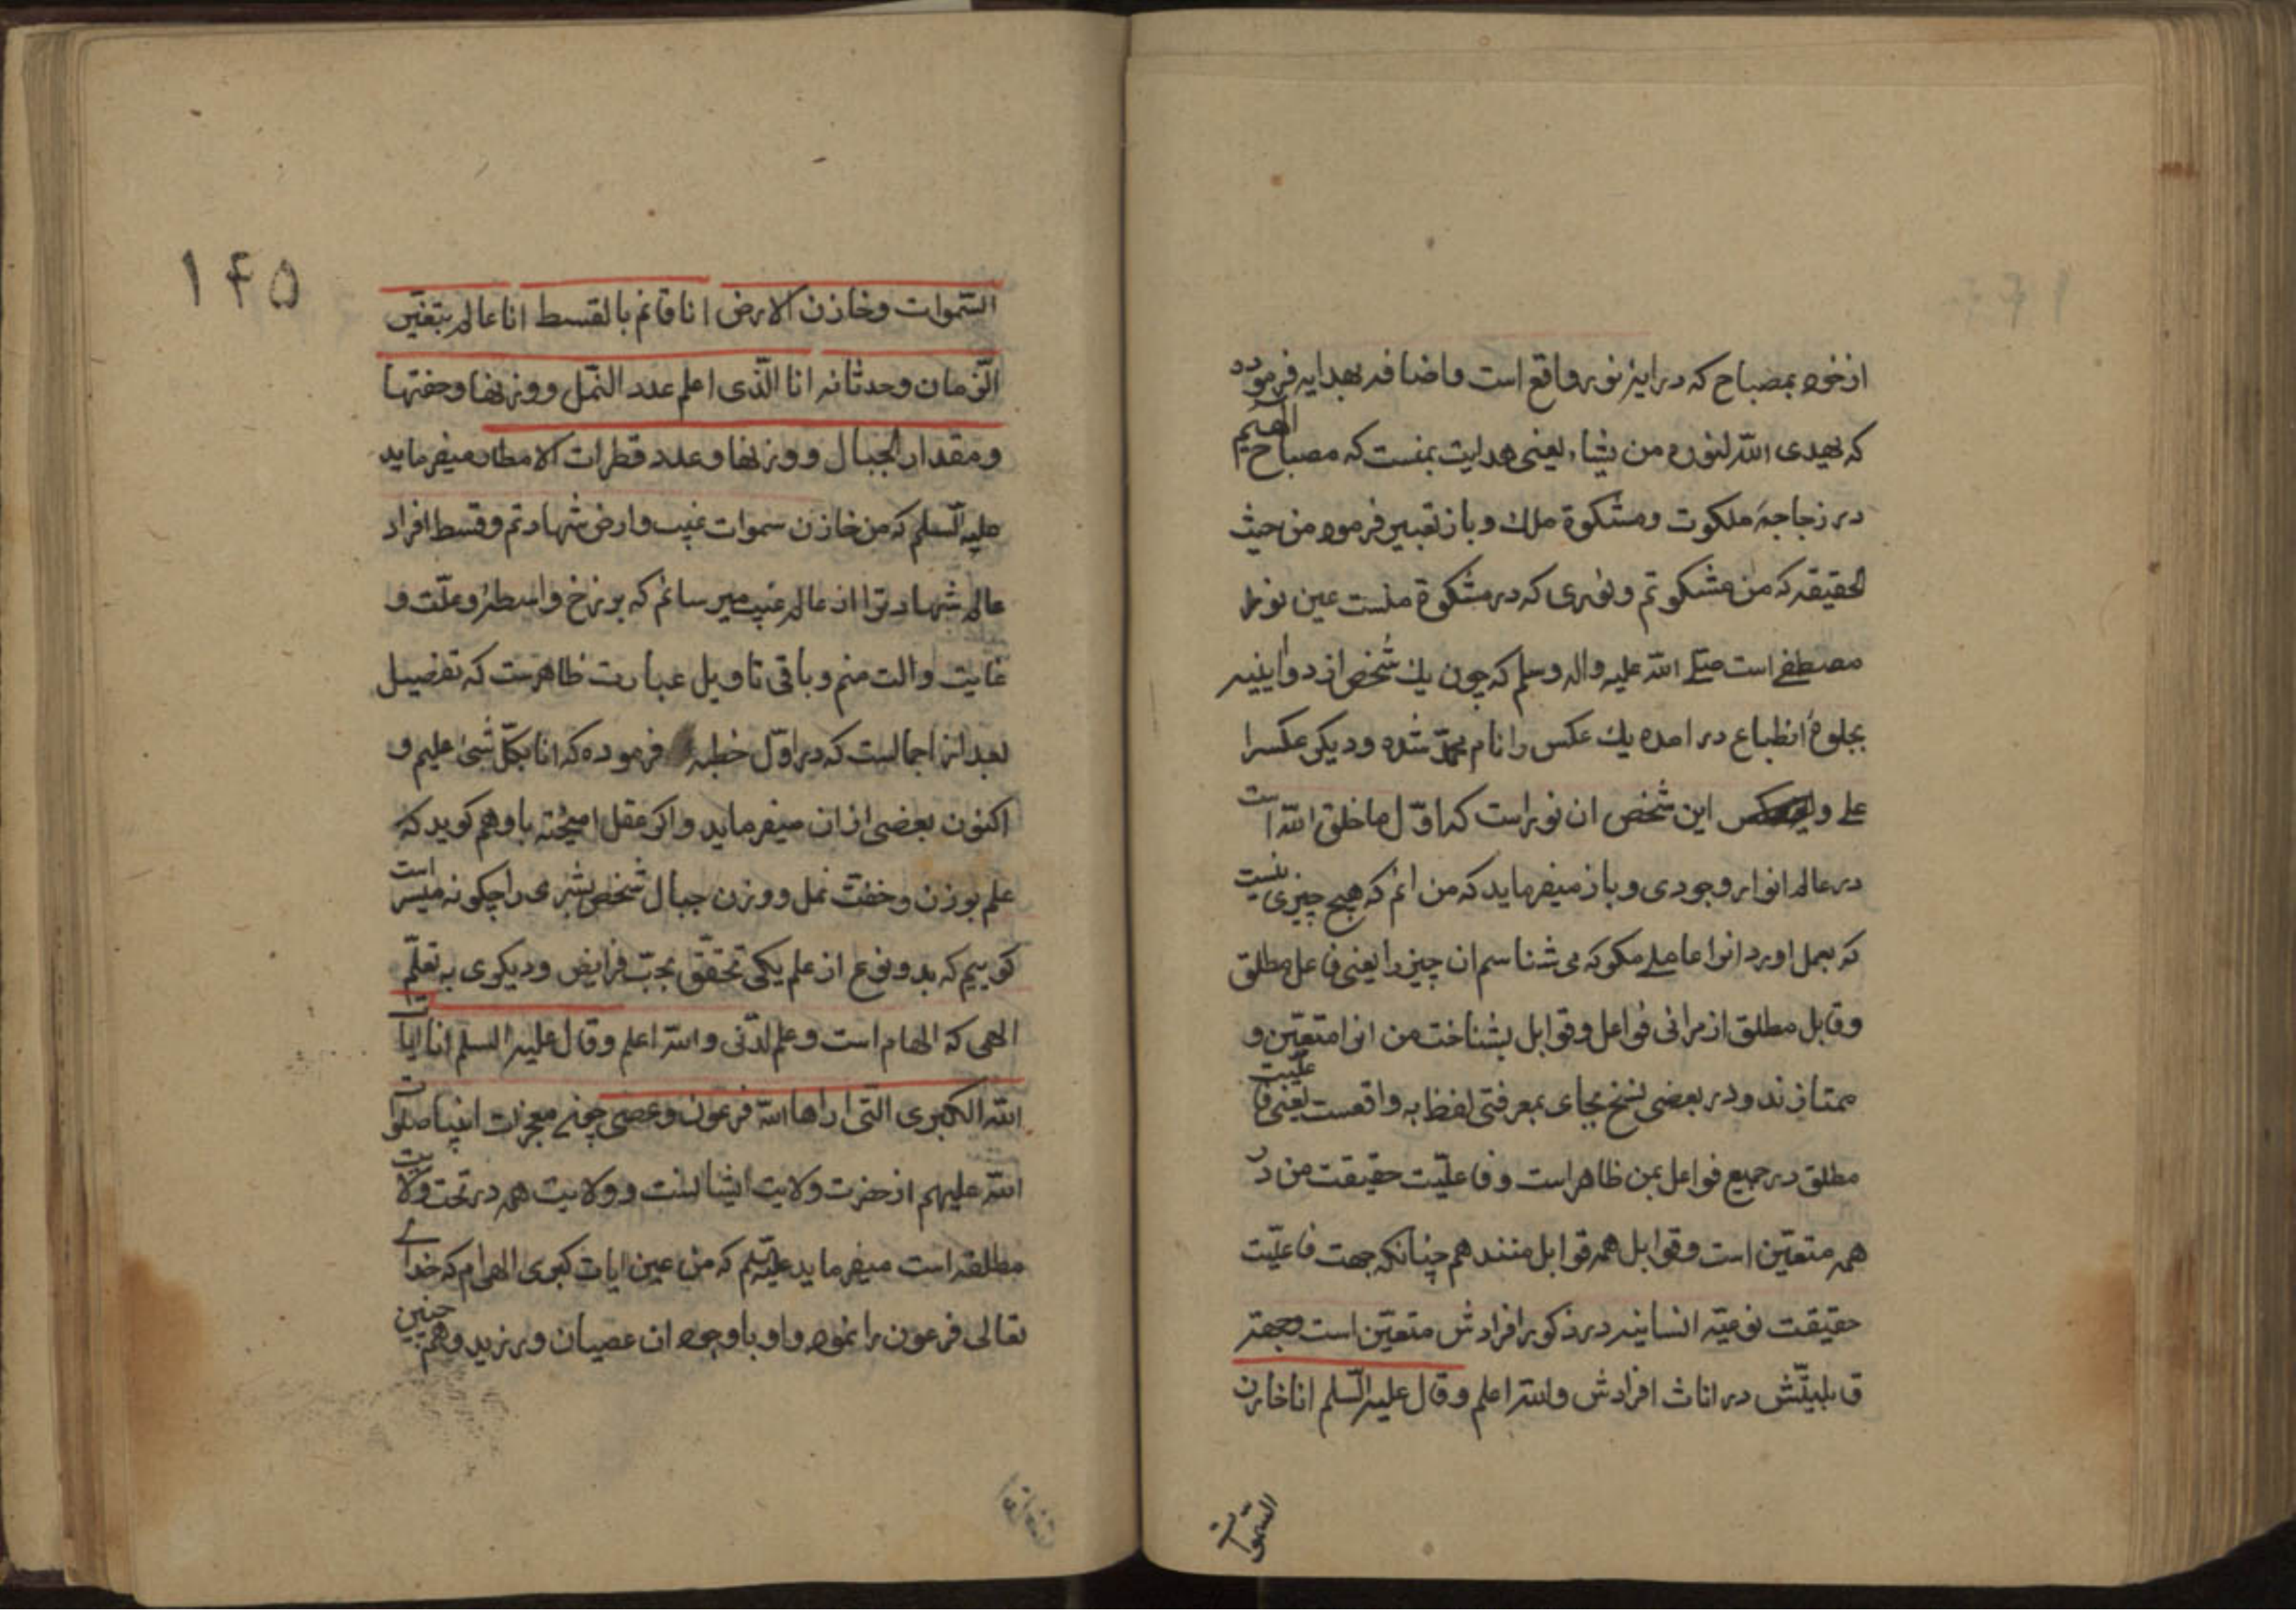 از خود بمصباح که در ایهٔ نور واقع است و اضافه بهدایه فرموده
که یهدی الله لنوره من یشاء یعنی هدایت بمنست که مصباح الهیم
در زجاجهٔ ملکوت و مشکوة ملك و باز تعبیر فرمود من حیث
الحقیقه که من مشکوتم و نوری که در مشکوة منست عین نور
مصطفی است صلی الله علیه واله وسلم که چون یك شخص از دو ایینه
بجلوهٔ انطباع در امده یك عکس را نام محمد شده و دیکر عکسرا
علی و این شخص ان نور است که اوّل ما خلق الله است
در عالم انوار وجودی و باز میفرماید که من انم که هیچ چیزی نیست
که بعمل اورد انرا عاملی مکر که می شناسم ان چیز را یعنی فاعل مطلق
و قابل مطلق از مرائی فواعل و قوابل بشناخت من انرا متعیّن و
ممتازند و در بعضی نسخ بجای بمعرفتی لفظ به واقعست یعنی فاعلیّت
مطلق در جمیع فواعل بمن ظاهر است و فاعلیّت حقیقت من در
همه متعیّن است و قوابل همه قوابل منند هم چنانکه جهت فاعلیّت
حقیقت نوعیّه انسانیه در ذکور افرادش متعیّن است و جهة
قابلیّتش در اناث افرادش والله اعلم وقال علیه السّلم انا خازن
السّموات
۱۴۵
السّموات وخازن الارض انا قائم بالقسط انا عالم بتغیّر
الزّمان وحدثانه انا الّذی اعلم عدد النّمل ووزنها وخفتها
ومقدار الجبال ووزنها وعدد قطرات الامطار میفرماید
علیه السّلم که من خازن سموات غیب و ارض شهادتم و قسط افراد
عالم شهادترا از عالم غیب میرسانم که برزخ و واسطه و علّت و
غایت و الت منم و باقی تاویل عبارت ظاهرست که تفضیل
بعد از اجمالست که در اوّل خطبه فرموده که انا بکلّ شیئ علیم و
اکنون بعضی از ان میفرماید و اکر عقل امیخته باوهم کوید که
علم بوزن و خفّت نمل و وزن جبال شخص بشری را چکونه میسر است
کوییم که بدو نوع از علم یکی تحقّق بحبّ فرایض و دیکری به تعلّم
الهی که الهام است و علم لدّنی والله اعلم وقال علیه السلم انا ایات
الله الکبری الّتی اراها الله فرعون وعصی چونکه معجزات انبیا صلوات
الله علیهم از حضرت ولایت ایشانست و ولایت همه در تحت ولایت
مطلقه است میفرماید علیه السّلم که من عین ایات کبری الهی ام که خدای
تعالی فرعون را نمود و او با وجود ان عصیان ورزید و هم چنین